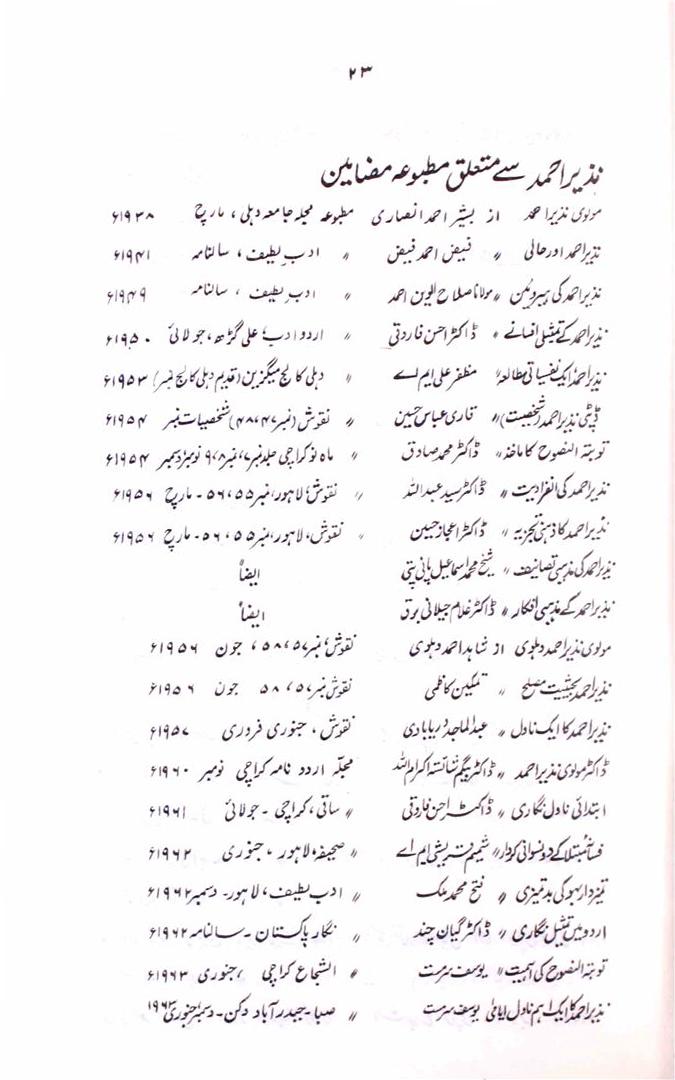 ۲۳
نذیر احمد سے متعلق مطبوعہ مضامین
مولوی نذیر احمد از بشیر احمد انصاری مطبوعہ مجلہ جامعہ دہلی، مارچ ۱۹۳۸ء
نذیر احمد اور حالی 〃 فیض احمد فیض 〃 ادب لطیف، سالنامہ ۱۹۴۱ء
نذیر احمد کی ہیروئن 〃 مولانا صلاح الدین احمد 〃 ادب لطیف، سالنامہ ۱۹۴۹ء
نذیر احمد کے تمثیلی افسانے 〃 ڈاکٹر احسن فاروقی 〃 اردو ادب، علی گڑھ، جولائی ۱۹۵۰ء
نذیر احمد ایک نفسیاتی مطالعہ 〃 مظفر علی ایم اے 〃 دہلی کالج میگزین (قدیم دہلی کالج نمبر) ۱۹۵۳ء
ڈپٹی نذیر احمد (شخصیت) 〃 قاری عباس حسین 〃 نقوش (نمبر ۴۷، ۴۸) شخصیات نمبر ۱۹۵۴ء
توبتہ النصوح کا ماخذ 〃 ڈاکٹر محمد صادق 〃 ماہ نو کراچی جلد نمبر ۷، نمبر ۸، ۹ نومبر دسمبر ۱۹۵۴ء
نذیر احمد کی انفرادیت 〃 ڈاکٹر سید عبداللہ 〃 نقوش، لاہور، نمبر ۵۵، ۵۶ ۔ مارچ ۱۹۵۶ء
نذیر احمد کا ذہنی تجزیہ 〃 ڈاکٹر اعجاز حسین 〃 نقوش، لاہور، نمبر ۵۵، ۵۶۔ مارچ ۱۹۵۶ء
نذیر احمد کی مذہبی تصانیف 〃 شیخ محمد اسماعیل پانی پتی ایضاً
نذیر احمد کے مذہبی افکار 〃 ڈاکٹر غلام جیلانی برق ایضاً
مولوی نذیر احمد دہلوی از شاہد احمد دہلوی نقوش، نمبر ۵۷، ۵۸، جون ۱۹۵۶ء
نذیر احمد بحیثیت مصلح 〃 تمکین کاظمی نقوش نمبر ۵۷، ۵۸ جون ۱۹۵۶ء
نذیر احمد کا ایک ناول 〃 عبدالماجد دریابادی نقوش، جنوری فروری ۱۹۵۷ء
ڈاکٹر مولوی نذیر احمد 〃 ڈاکٹر بیگم شائستہ اکرام اللہ مجلہ اردو نامہ کراچی نومبر ۱۹۶۰ء
ابتدائی ناول نگاری 〃 ڈاکٹر احسن فاروقی 〃 ساقی، کراچی ۔ جولائی ۱۹۶۱ء
فسانہ مبتلا کے دو نسوانی کردار 〃 شمیم قریشی ایم اے 〃 صحیفہ، لاہور، جنوری ۱۹۶۲ء
تمیزدار بہو کی بدتمیزی 〃 فتح محمد ملک 〃 ادب لطیف، لاہور۔ دسمبر ۱۹۶۲ء
اردو میں تمثیل نگاری 〃 ڈاکٹر گیان چند 〃 نگار پاکستان ۔ سالنامہ ۱۹۶۲ء
توبتہ النصوح کی اہمیت 〃 یوسف سرمست 〃 الشجاع کراچی، جنوری ۱۹۶۳ء
نذیر احمد کا ایک اہم ناول ایامیٰ یوسف سرمست 〃 صبا۔ حیدرآباد دکن۔ دسمبر، جنوری ۱۹۶۳ء